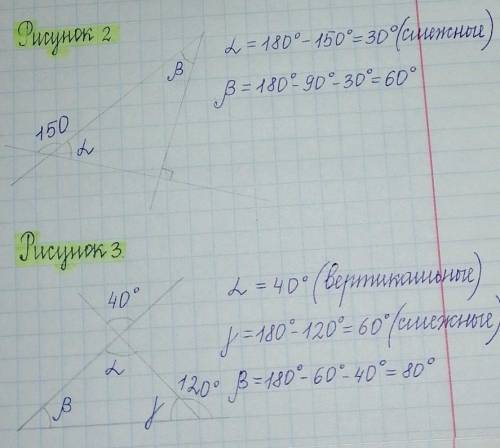 Рисунок 2
α = 180° - 150° = 30° (смежные)
β = 180° - 90° - 30° = 60°
β
150
α
Рисунок 3
α = 40° (вертикальные)
γ = 180° - 120° = 60° (смежные)
β = 180° - 60° - 40° = 80°
40°
α
120°
β
γ